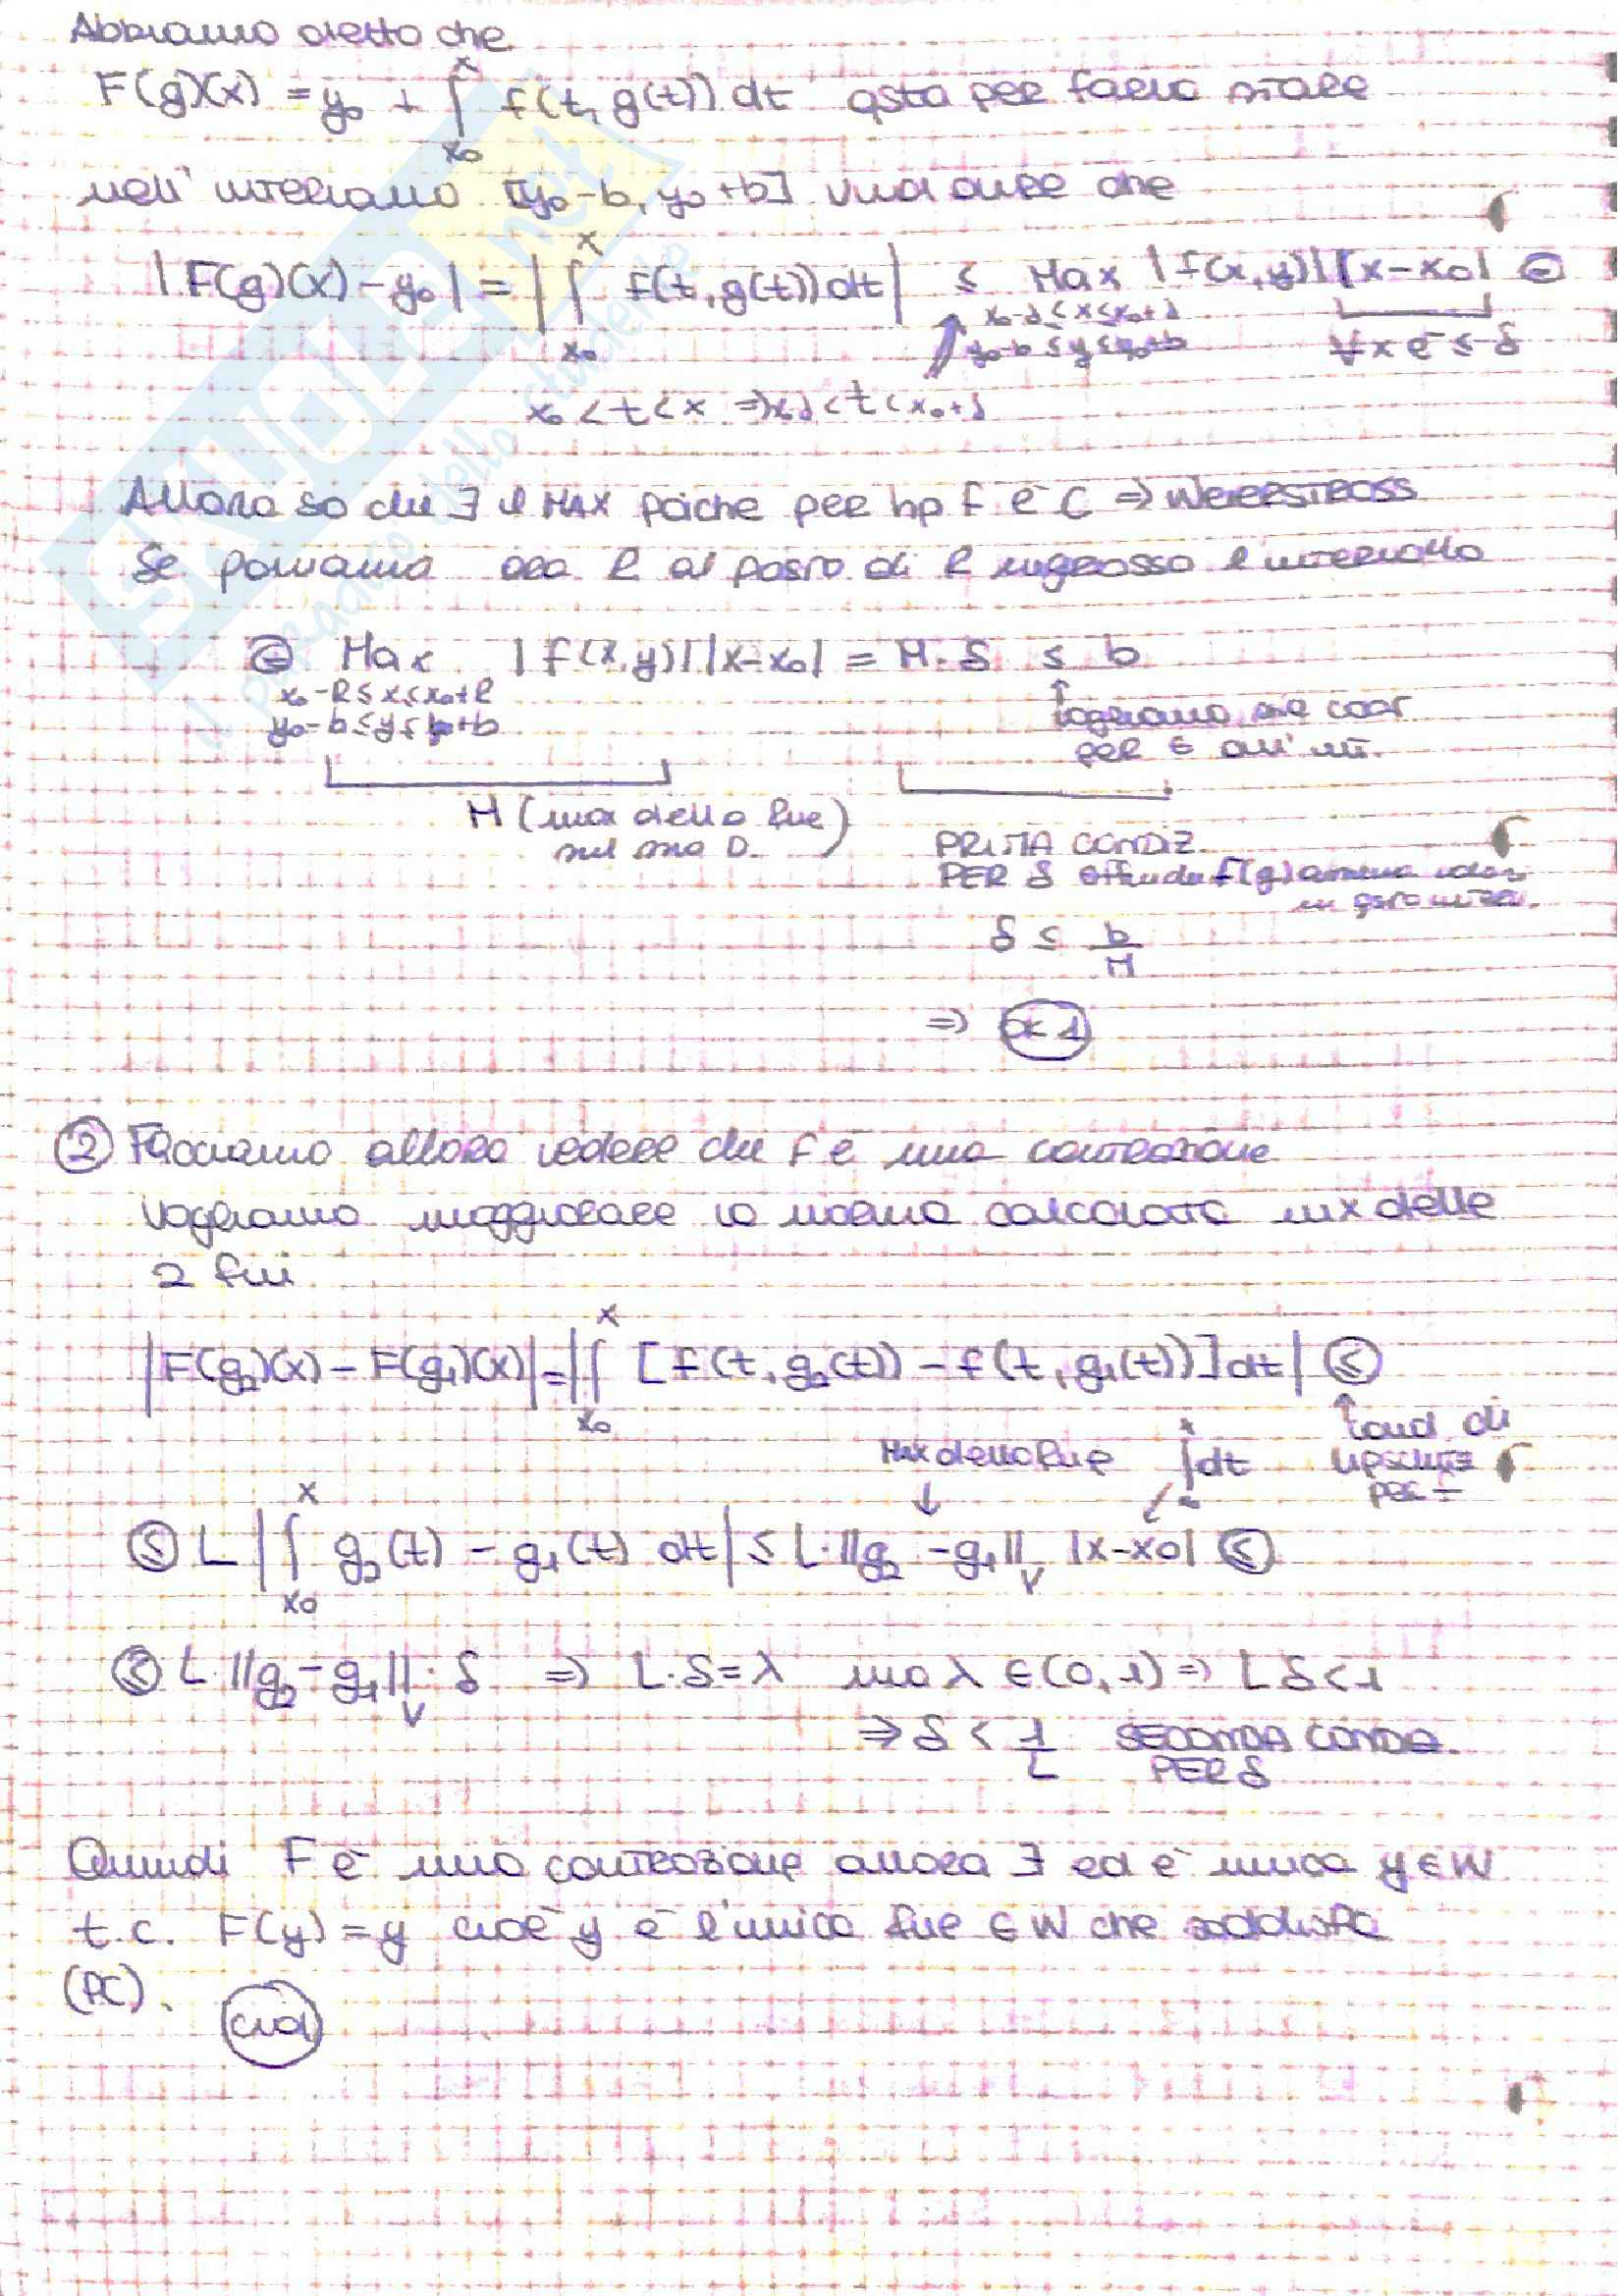 Abbiamo detto che
F(g)(x) = y₀ + ∫ₓ₀ˣ f(t, g(t)) dt qsta per farla stare
nell'intervallo [y₀-b, y₀+b] vuol dire che
|F(g)(x) - y₀| = |∫ₓ₀ˣ f(t, g(t)) dt| ≤ Max |f(x,y)| |x-x₀| ≤
x₀-δ≤x≤x₀+δ
y₀-b≤y≤y₀+b ∀x è ≤ δ
x₀<t<x ⇒ x₀-δ<t<x₀+δ
Allora so che ∃ il MAX poiche per hp f è C ⇒ Weierstrass
Se poniamo ora R al posto di ingrosso l'intervallo
≤ Max |f(x,y)| |x-x₀| = M·δ ≤ b
x₀-R≤x≤x₀+R
y₀-b≤y≤y₀+b
vogliamo sia così
per ∈ all'int.
M (max della fne
sul suo D.)
PRIMA CONDIZ.
PER δ affinche F(g) assuma valori
in qsto int.
δ ≤ b/M
⇒ ok 1
② Facciamo allora vedere che F è una contrazione
Vogliamo maggiorare la norma calcolata in x delle
2 fni
|F(g₂)(x) - F(g₁)(x)| = |∫ₓ₀ˣ [f(t, g₂(t)) - f(t, g₁(t))] dt| ≤
cond di
Lipschitz
per f
Max della fne ∫dt
≤ L |∫ₓ₀ˣ g₂(t) - g₁(t) dt| ≤ L·||g₂-g₁||ᵥ |x-x₀| ≤
≤ L·||g₂-g₁||ᵥ·δ ⇒ L·δ=λ ma λ∈(0,1) ⇒ Lδ<1
⇒ δ < 1/L SECONDA CONDIZ.
PER δ
Quindi F è una contrazione allora ∃ ed è unica y∈W
t.c. F(y)=y cioè y è l'unica fne ∈W che soddisfa
(PC).
cvd
SKUOLA.net